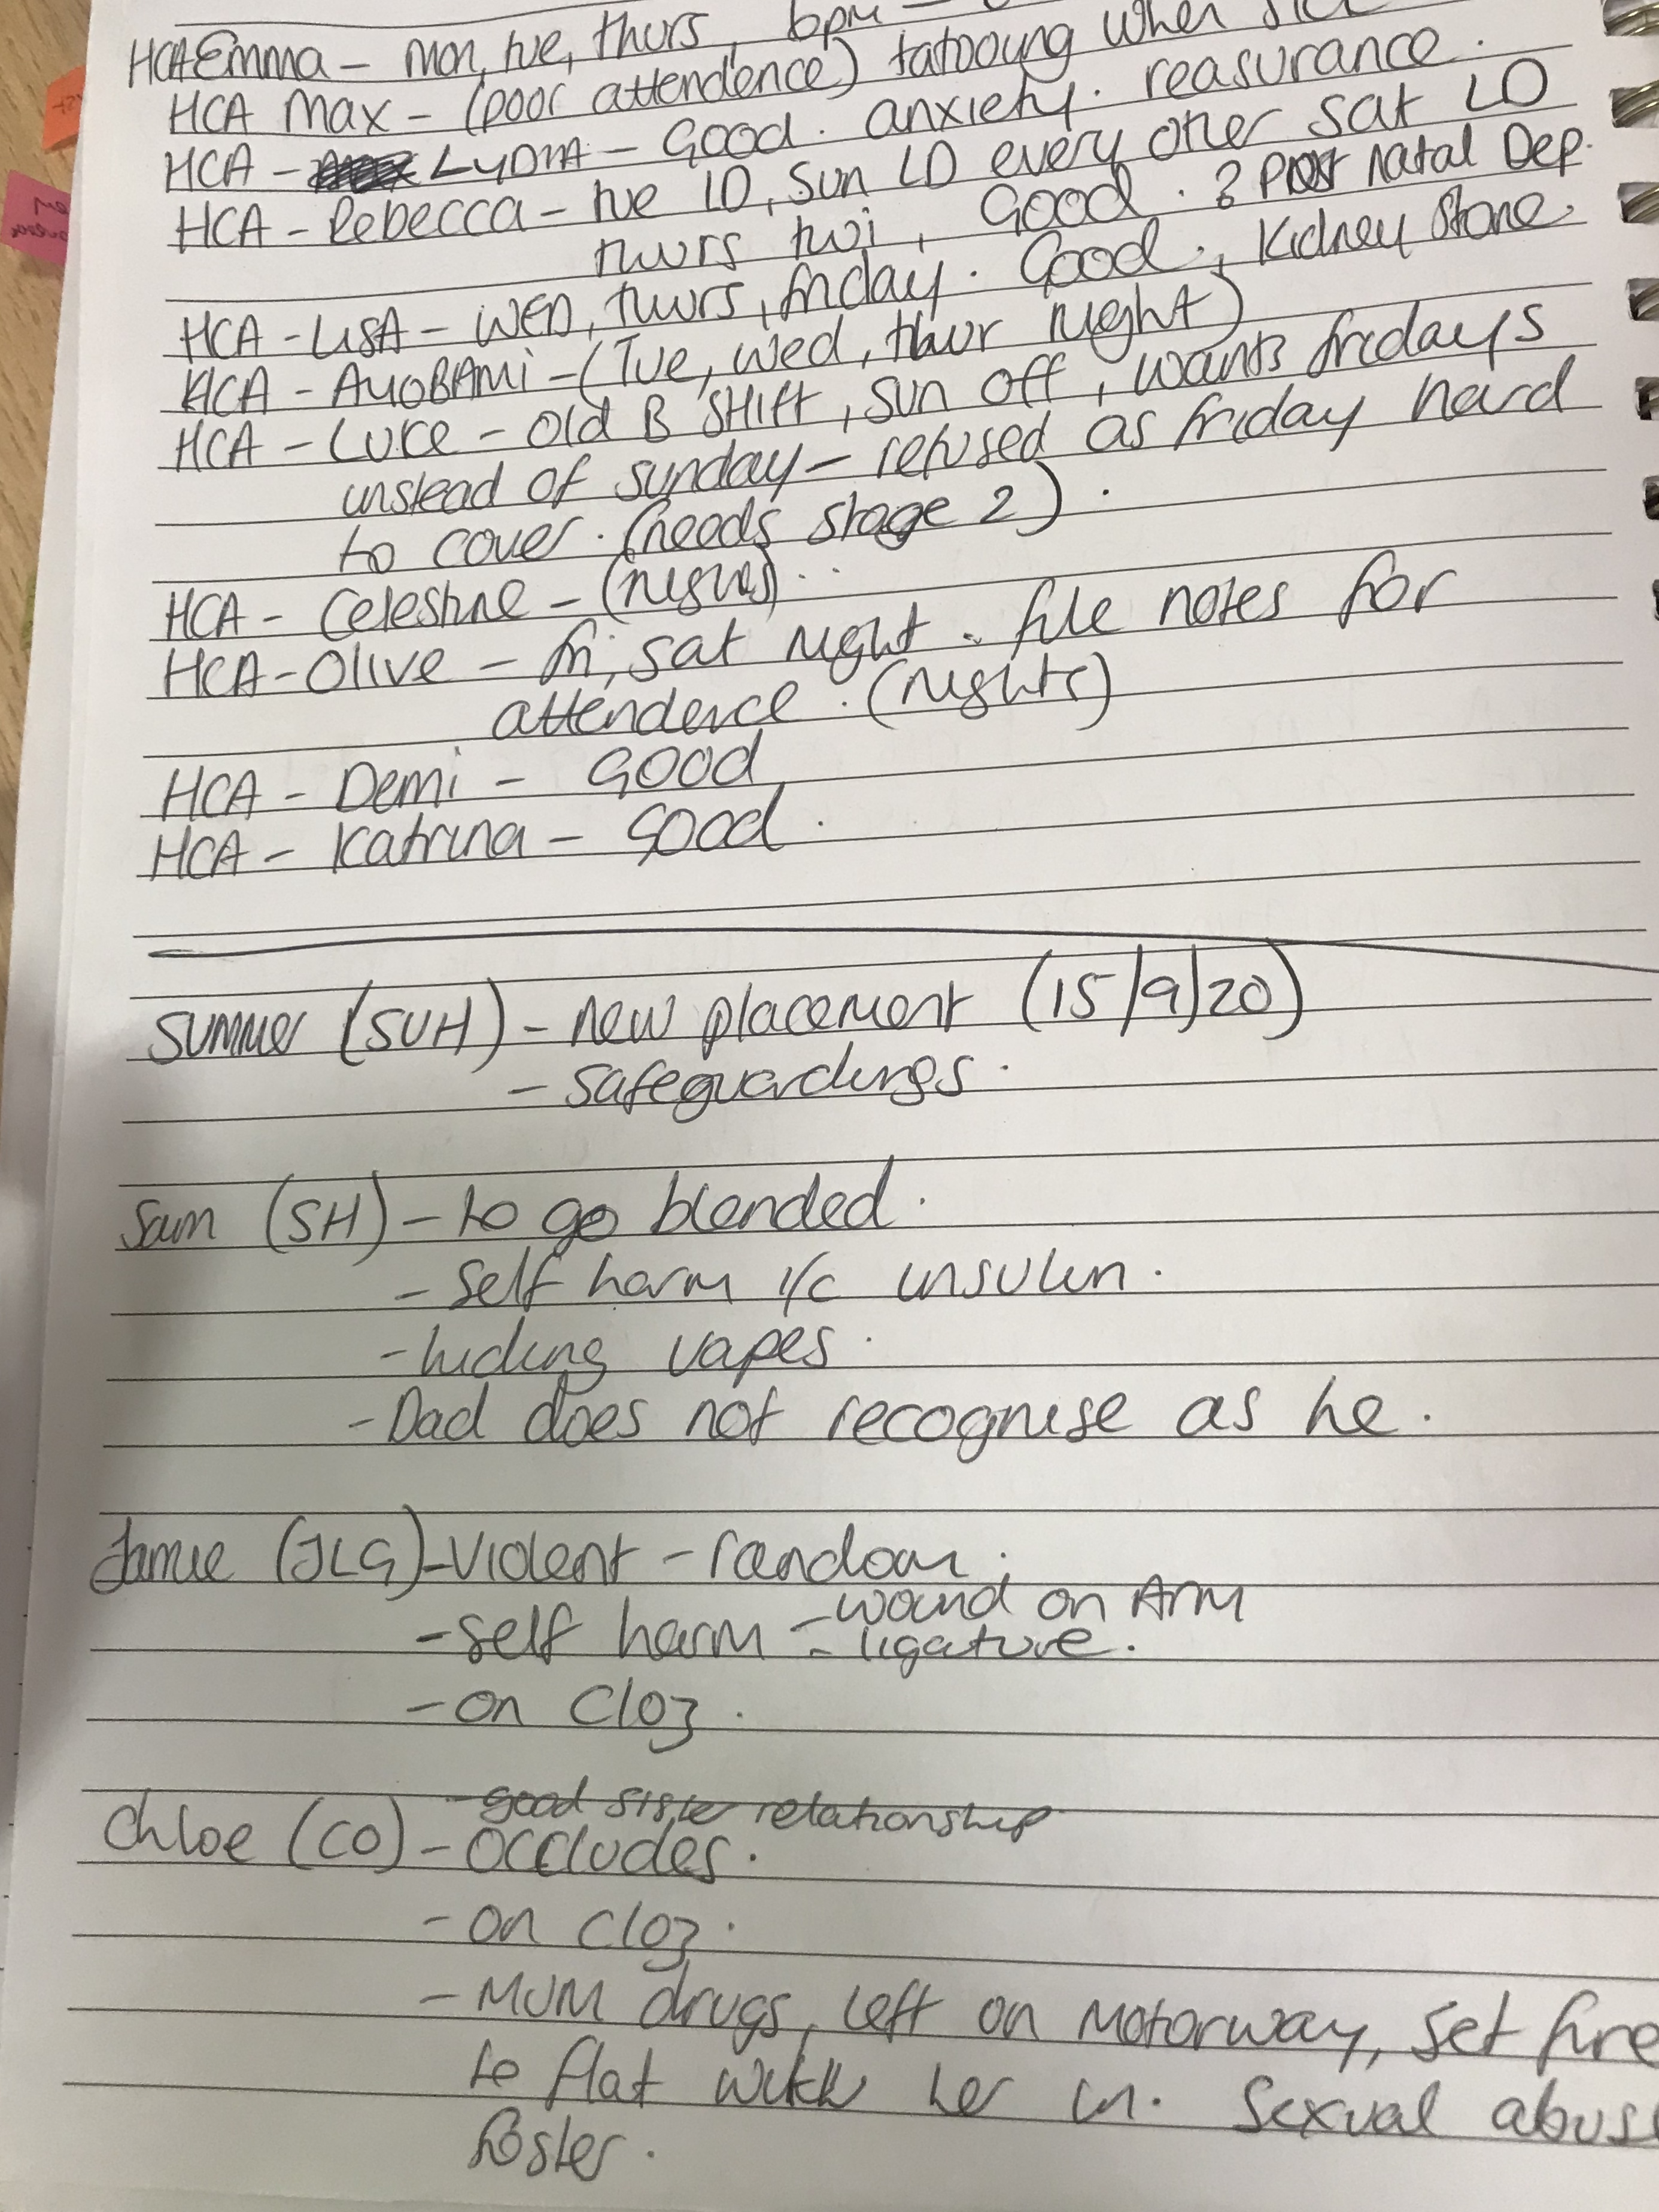 HCA Emma - Mon, tue, thurs, 6pm -
HCA Max - (poor attendence) tatooung when sick
HCA - LYDIA - Good. anxiety. reasurance.
HCA - Rebecca - tue LD, Sun LD every other sat LD
thurs twi, Good. ? Post Natal Dep.
HCA - LISA - WED, thurs, friday. Good., Kidney Stone.
HCA - AYOBAMi - (Tue, wed, thur night)
HCA - Luke - old B SHIft, sun off, wants fridays
instead of sunday - refused as friday hard
to cover. (needs stage 2).
HCA - Celestine - (nights)..
HCA - Olive - fri, sat night. file notes for
attendence. (nights)
HCA - Demi - Good
HCA - Katrina - Good.
Summer (SUH) - new placement (15/9/20)
- Safeguardings.
Sam (SH) - to go blended.
- Self harm i/c insulin.
- hiding vapes.
- Dad does not recognise as he.
Jamie (JLG) - Violent - random.
- self harm - wound on Arm
- ligature.
- on Cloz.
- good sister relationship
Chloe (CO) - Occludes.
- on Cloz.
- Mum drugs, left on Motorway, set fire
to flat with her in. Sexual abuse
foster.